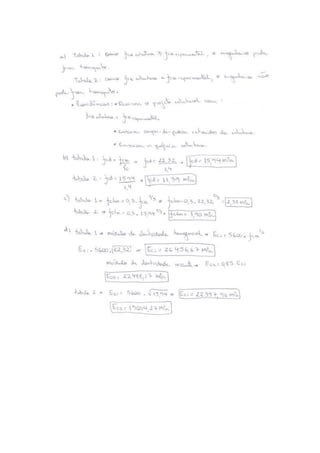 a) Tabela 1: como fck estrutura > fck experimental, o engenheiro pode
ficar tranquilo.
Tabela 2: como fck estrutura < fck experimental, o engenheiro não
pode ficar tranquilo.
• Consequências: • Revisar o projeto estrutural com
fck estrutura = fck experimental
• Ensaiar corpos-de-prova extraídos da estrutura
• Ensaiar a própria estrutura.
b) tabela 1: fcd = fck/γc = fcd = 22,32/1,4 = fcd = 15,94 MPa
tabela 2: fcd = 15,94/1,4 = fcd = 11,39 MPa
c) tabela 1 = fctm = 0,3 . fck 2/3 = fctm = 0,3 . 22,32 2/3 = 2,38 MPa
tabela 2 = fctm = 0,3 . 15,94 2/3 = fctm = 1,90 MPa
d) tabela 1 = módulo de elasticidade tangencial = Eci = 5600 . fck 1/2
Eci = 5600 . √22,32 = Eci = 26456,67 MPa
módulo de elasticidade secante = Ecs = 0,85 Eci
Ecs = 22488,17 MPa
tabela 2 = Eci = 5600 . √15,94 = Eci = 22357,96 MPa
Ecs = 19004,27 MPa